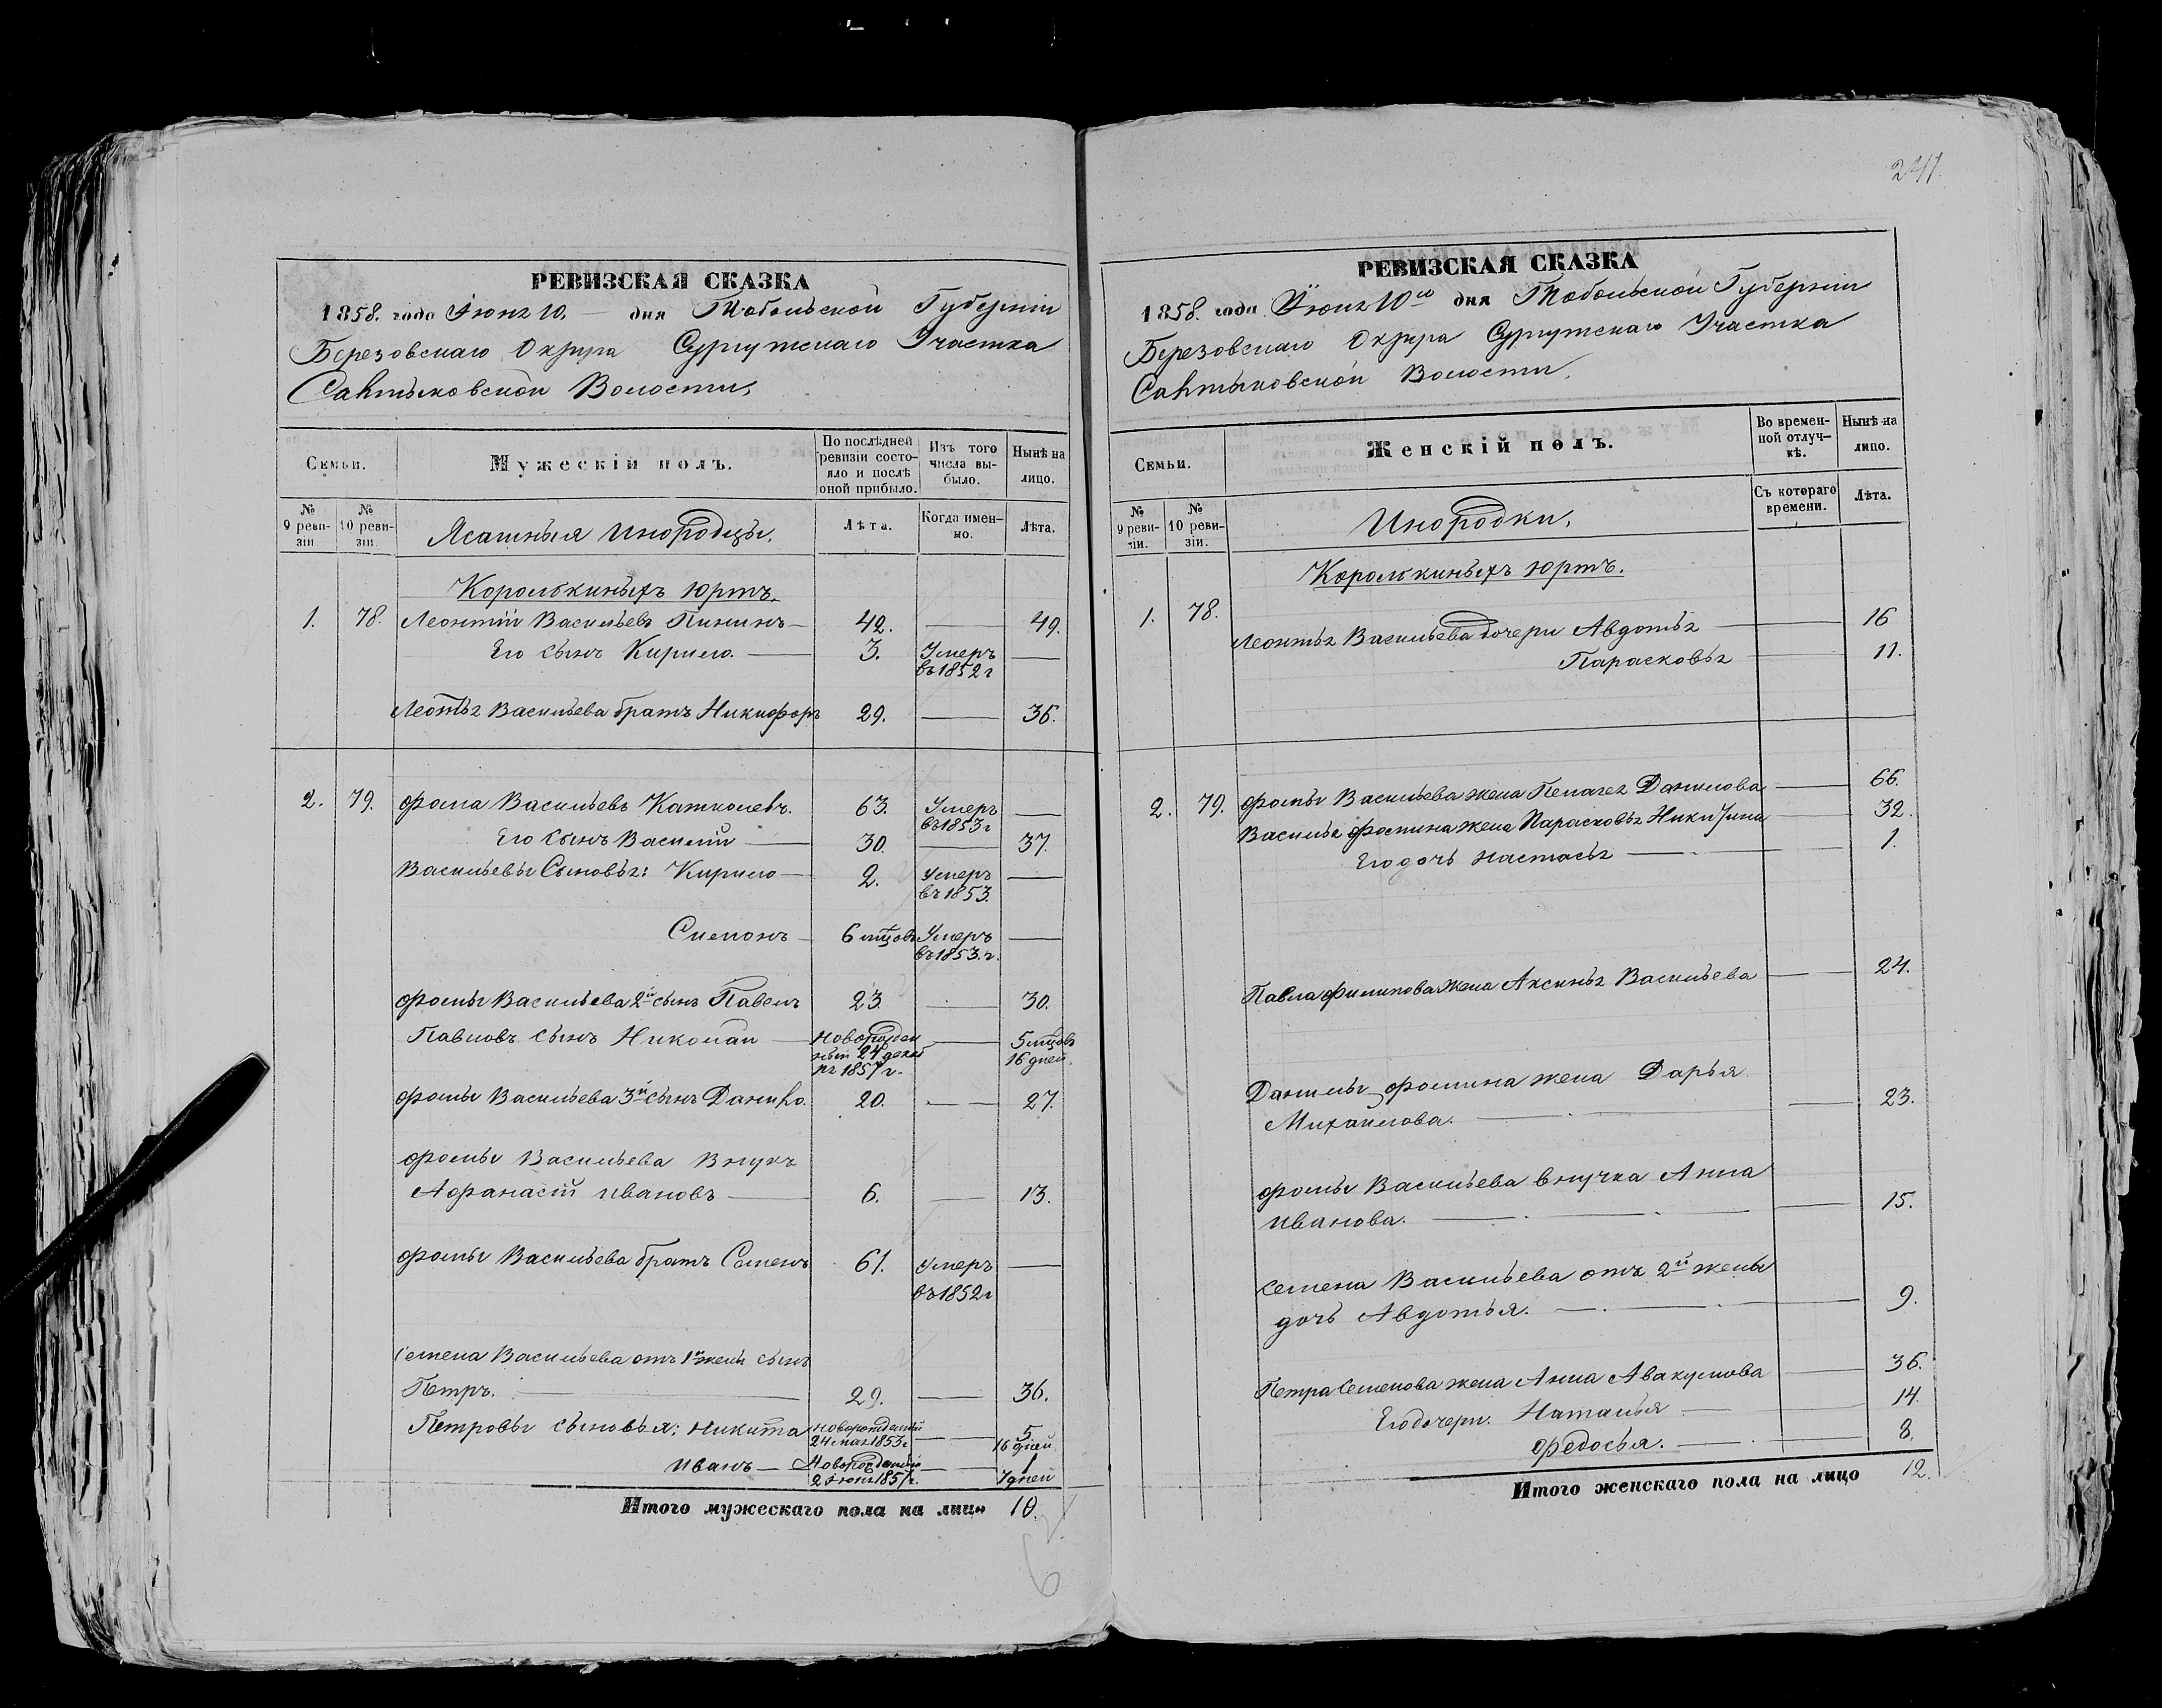 241.
РЕВИЗСКАЯ СКАЗКА
1858. года Іюня 10. — дня Тобольской Губерніи
Березовскаго Округа Сургутскаго Участка
Салтыковской Волости,
Семьи.
Мужескій полъ.
По послѣдней ревизіи состояло и послѣ оной прибыло.
Изъ того числа выбыло.
Нынѣ на лицо.
№ 9 ревизіи.
№ 10 ревизіи.
Ясашныя Инородцы.
Лѣта.
Когда именно.
Лѣта.
Королькиныхъ Юртъ.
1. 78. Леонтій Васильевъ Пининъ — 42. — 49.
Его сынъ Кирило. — 3. Умеръ въ 1852 г —
Леонтья Васильева братъ Никифоръ 29. — 36.
2. 79. Фома Васильевъ Каткалевъ. 63. Умеръ въ 1853 г —
Его Сынъ Василій — 30. — 37.
Васильевы Сыновья: Кирило — 2. Умеръ въ 1853. —
Симонъ — 6 мѣцовъ Умеръ въ 1853. г. —
Фомы Васильева 2й сынъ Павелъ 23 — 30.
Павловъ сынъ Николай — Новорожденный 24 декабря 1857 г. — 5 мѣцовъ 16 дней.
Фомы Васильева 3й сынъ Данило. 20. — 27.
Фомы Васильева Внукъ
Афанасій Ивановъ — 6. — 13.
Фомы Васильева братъ Семенъ 61. Умеръ въ 1852 г —
Семена Васильева отъ 1й жены сынъ
Петръ. — 29. — 36.
Петровы сыновья: Никита Новорожденный 24 мая 1853 г — 5 16 дней
Иванъ — Новорожденный 2 Іюня 1857 г. — 1 7 дней
Итого мужескаго пола на лицо 10.
РЕВИЗСКАЯ СКАЗКА
1858. года Іюня 10го дня Тобольской Губерніи
Березовскаго Округа Сургутскаго Участка
Салтыковской Волости.
Семьи.
Женскій полъ.
Во временной отлучкѣ.
Нынѣ на лицо.
№ 9 ревизіи.
№ 10 ревизіи.
Инородки.
Съ котораго времени.
Лѣта.
Королькиныхъ Юртъ.
1. 78. Леонтья Васильева дочери Авдотья — 16
Парасковья — 11.
2. 79. Фомы Васильева жена Пелагея Данилова — 66.
Василья Фомина жена Парасковья Никитина — 32.
Его дочь Настасья — 1.
Павла Филипова жена Аксинья Васильева — 24.
Данилы Фомина жена Дарья
Михайлова. — 23.
Фомы Васильева внучка Анна
Иванова. — 15.
Семена Васильева отъ 2й жены
дочь Авдотья. — 9.
Петра Семенова жена Анна Авакумова — 36.
Его дочери. Наталья — 14.
Федосья. — 8.
Итого женскаго пола на лицо 12.